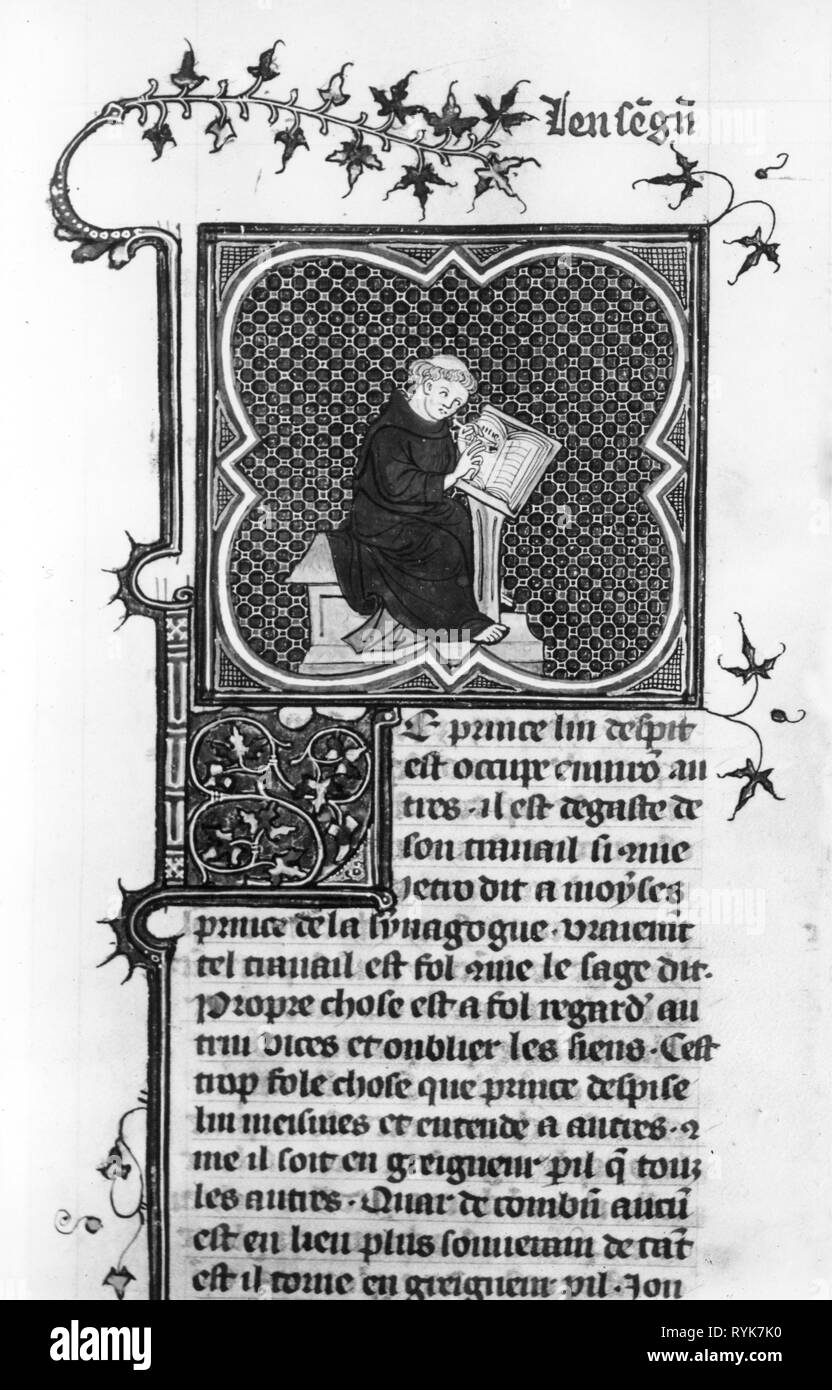 Len segñ
E prince lui despit
est occupe enuirõ au
tres · il est degaste de
son trauail si ꝯme
Jetro dit a moyses
prince de la synagogue · vraiemt
tel trauail est fol ꝯme le sage dit ·
Propre chose est a fol regard' au
trui vices et oublier les siens · Cest
trop fole chose que prince despise
lui meismes et entende a autres · ꝯ
me il soit en greigneur pil q̃ touz
les autres · Quar de combñ aucũ
est en lieu plus souuerain de tãt
est il torne en greigneur pil · Jon
alamy
Image ID: RYK7K0
www.alamy.com